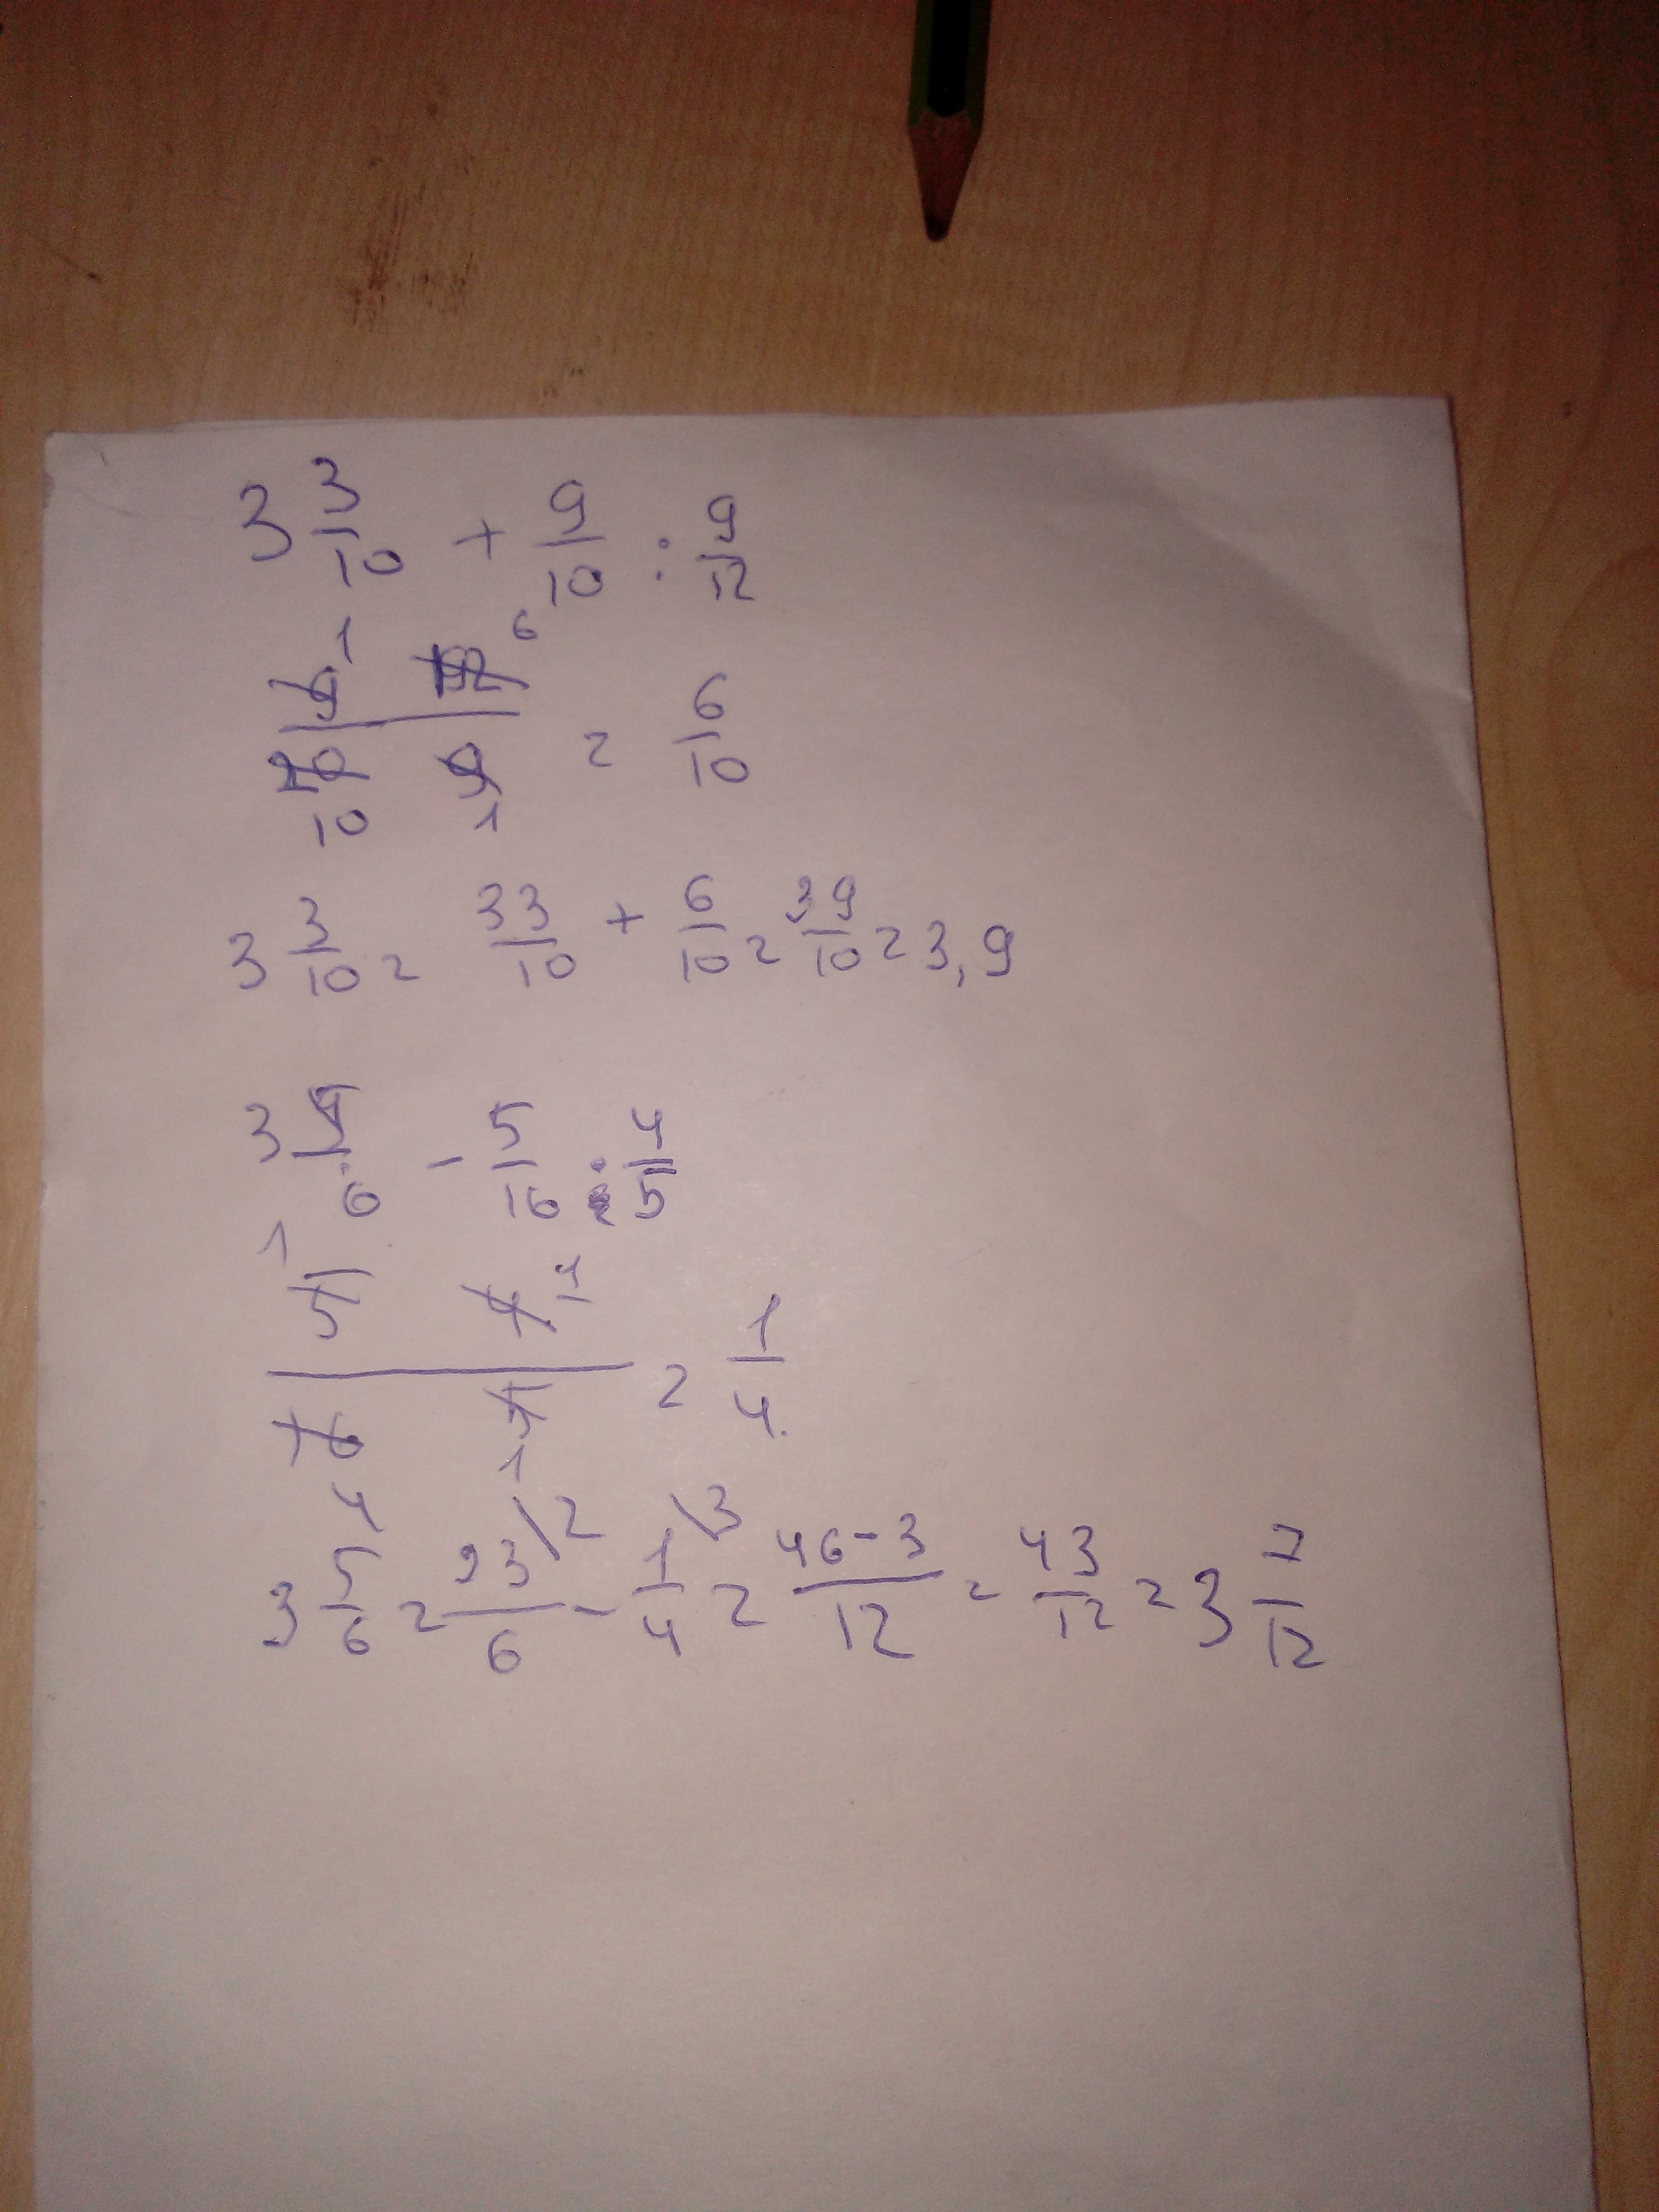 3 3/10 + 9/10 : 9/12
9 12 6 / 10 9 1 = 6/10
3 3/10 = 33/10 + 6/10 = 39/10 = 3,9
3 5/6 - 5/16 : 4/5
1 5 4 1 / 16 4 5 1 = 1/4
3 5/6 = 23\2/6 - 1\3/4 = 46-3/12 = 43/12 = 3 7/12